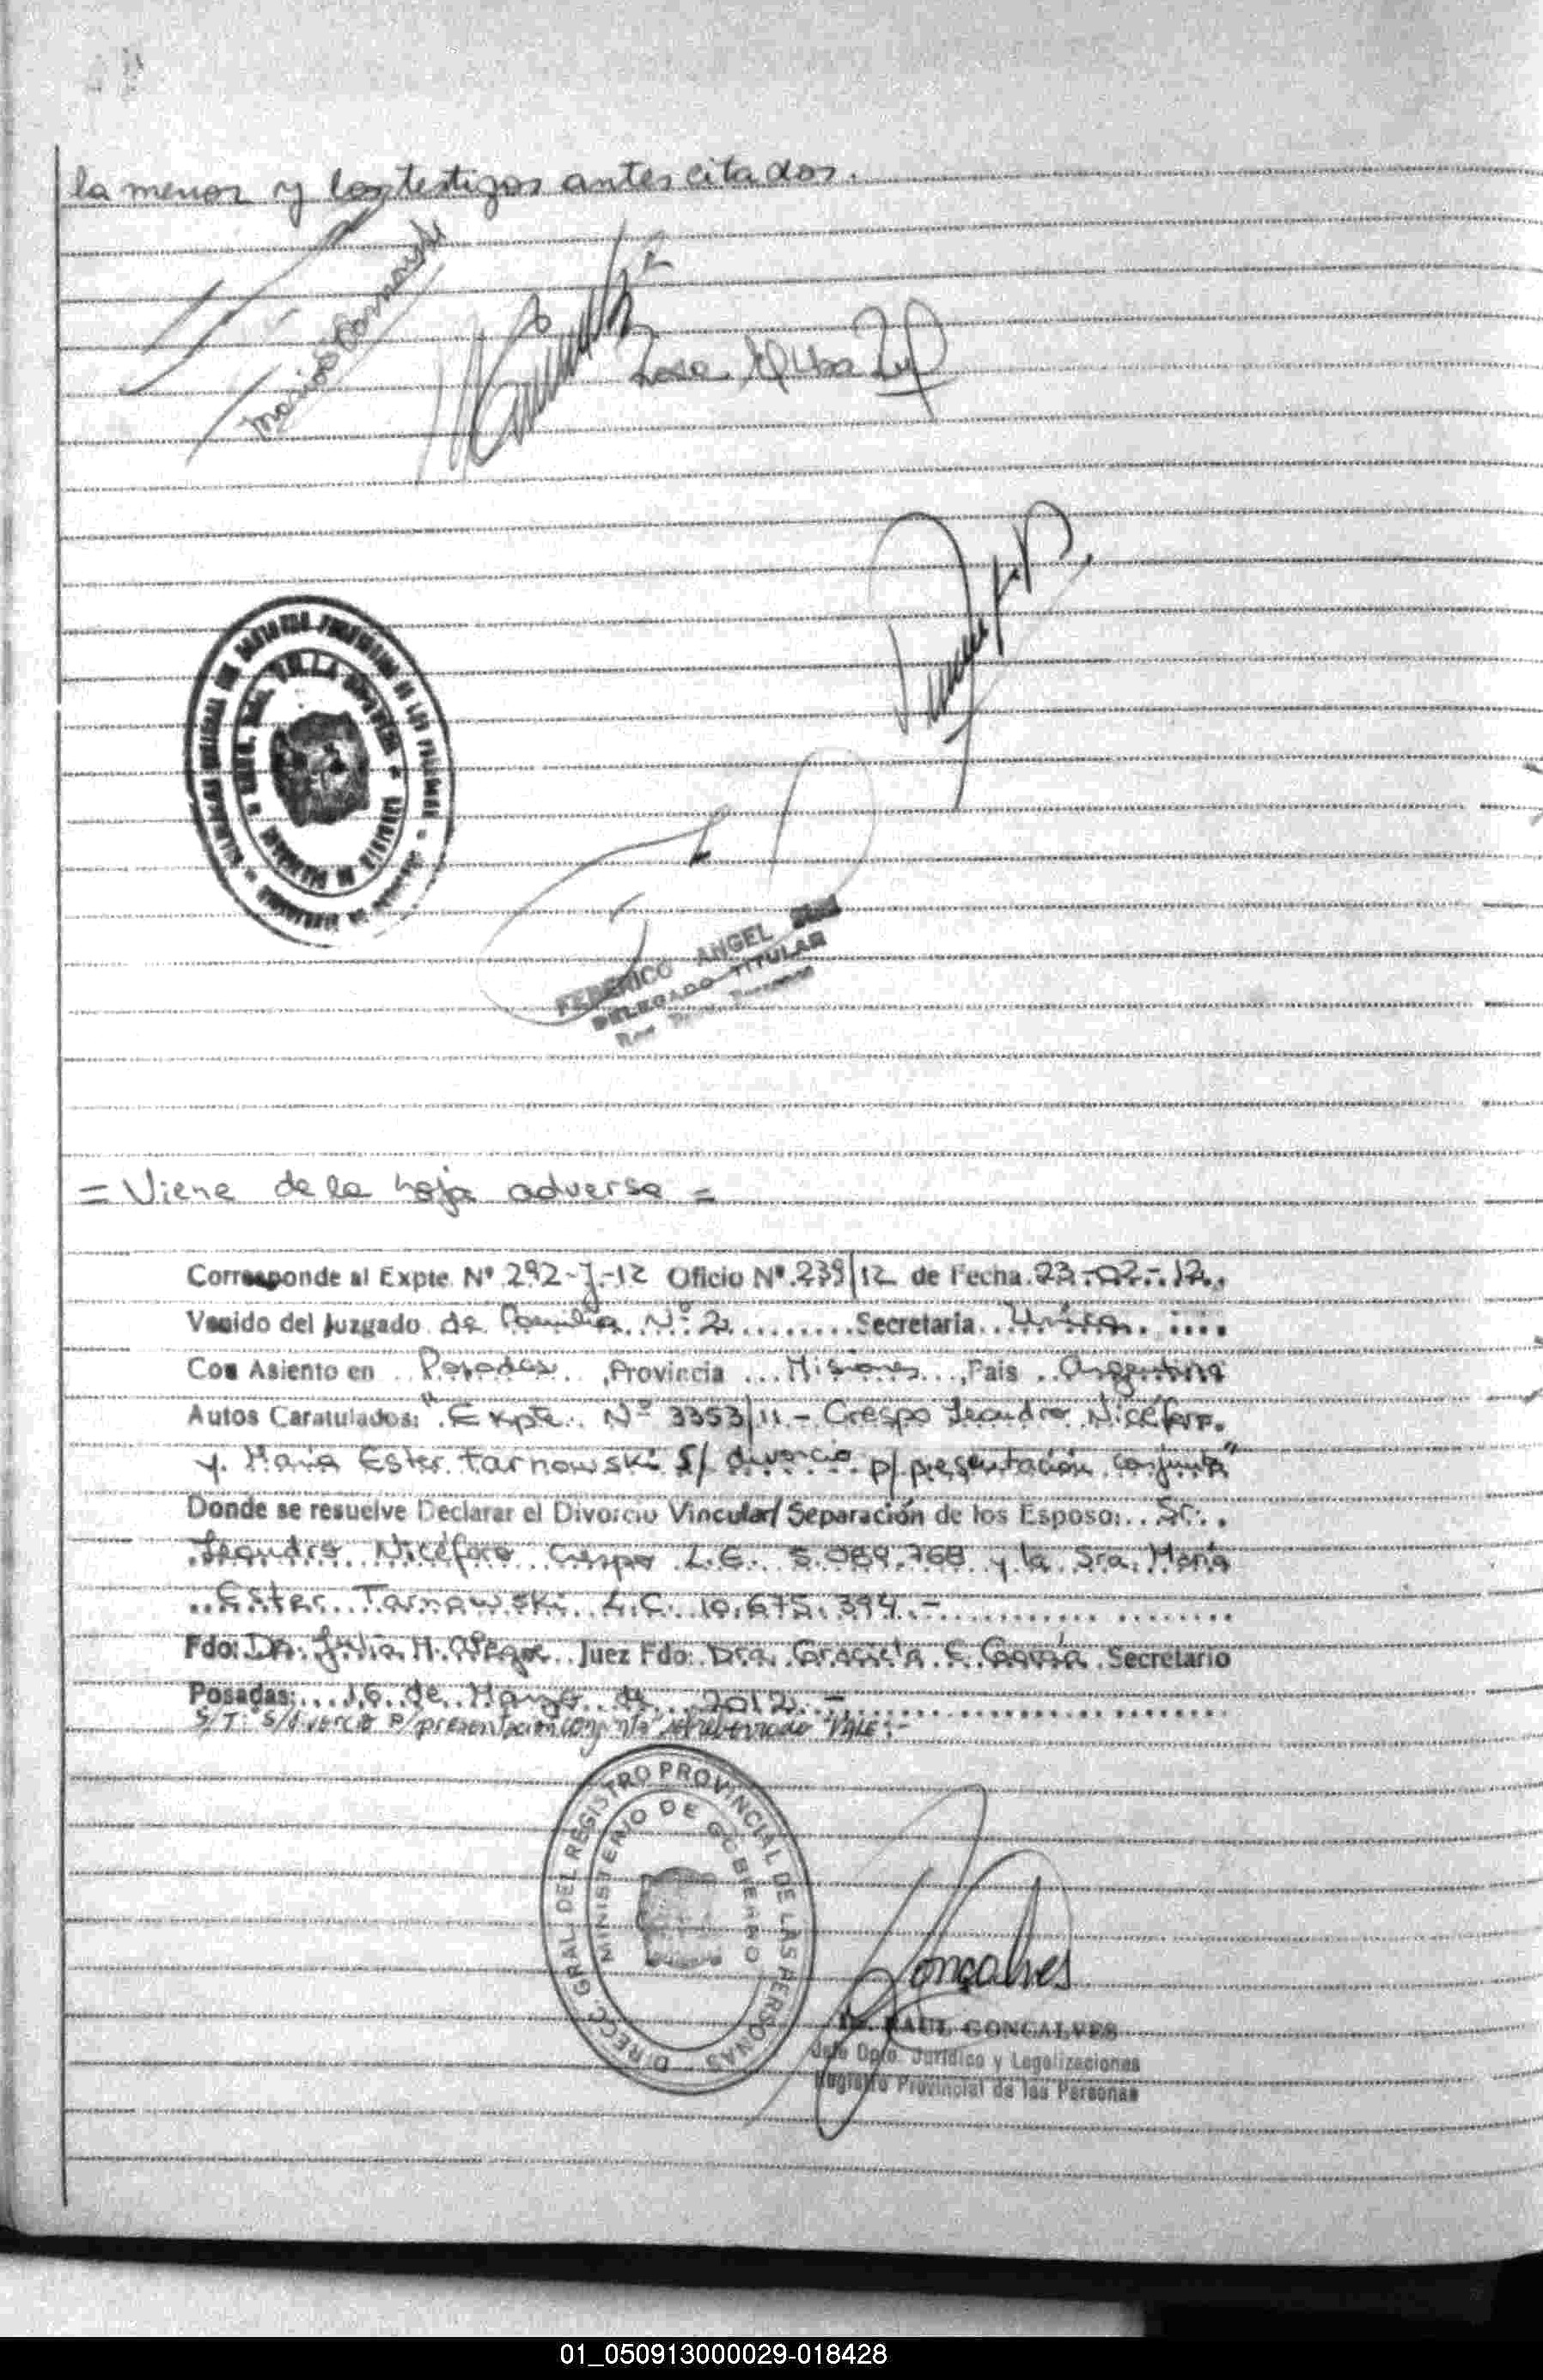 la menor y los testigos antes citados.
Maria E Tarnowski
FEDERICO ANGEL
DELEGADO TITULAR
= Viene de la hoja adversa =
Corresponde al Expte. Nº 292-J-12 Oficio Nº 239/12 de Fecha 23-02-12.
Venido del Juzgado de Familia Nº 2 Secretaria Única
Con Asiento en Posadas, Provincia Misiones, Pais Argentina
Autos Caratulados: "Expte. Nº 3353/11 - Crespo Leandro Nicéforo
y Maria Ester Tarnowski S/ divorcio p/ presentación conjunta"
Donde se resuelve Declarar el Divorcio Vincular/ Separación de los Esposo: Sr.
Leandro Nicéforo Crespo L.E. 5.089.768 y la Sra. Maria
Ester Tarnowski L.C. 10.675.394.-
Fdo: Dr. Julia H. Juez Fdo: Dra. Graciela E. Secretario
Posadas: 16 de Marzo de 2012.-
S/T: "S/divorcio P/presentacion conjunta" sobreborrado "VALE".-
DIRECC. GRAL. DEL REGISTRO PROVINCIAL DE LAS PERSONAS
MINISTERIO DE GOBIERNO
Gonçalves
Dr. RAUL GONCALVES
Jefe Dpto. Jurídico y Legalizaciones
Registro Provincial de las Personas
01_050913000029-018428